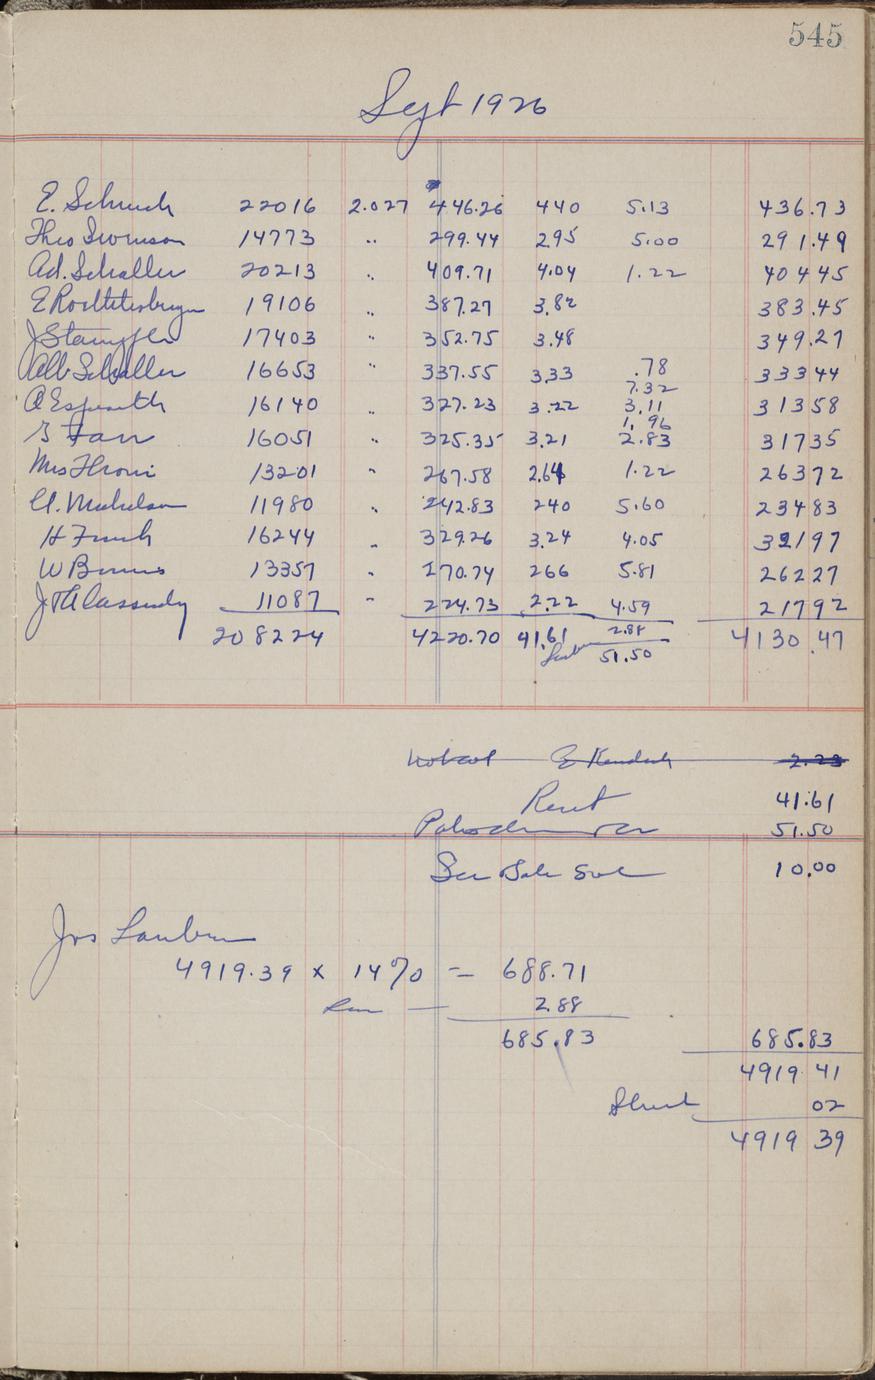 545
Sept 1926
E. Schuch 22016 2.027 446.26 440 5.13 436.73
Theo Swenson 14773 " 299.44 295 5.00 291.49
Ad. Schaller 20213 " 409.71 4.04 1.22 404 45
E 19106 " 387.27 3.82 383.45
J Stampfle 17403 " 352.75 3.48 349.27
Alb Schaller 16653 " 337.55 3.33 .78 333 44
7.32
A Espeseth 16140 " 327.23 3.22 3.11 313 58
1.96
16051 " 325.35 3.21 2.83 317 35
Mrs 13201 " 267.58 2.64 1.22 263 72
11980 " 242.83 240 5.60 234 83
H 16244 " 329.26 3.24 4.05 321 97
W 13357 " 270.74 266 5.81 262 27
J H Cassidy 11087 " 224.73 2.22 4.59 217 92
208224 4220.70 41.61 2.88 4130.47
51.50
E 2.23
Rent 41.61
51.50
10.00
Jos
4919.39 x 14% = 688.71
2.88
685.83 685.83
4919 41
Short 02
4919 39